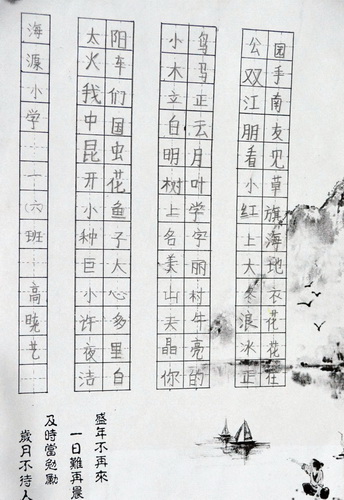 海濂小学一(六)班高晓艺
太阳
火车
我们
中国
昆虫
开花
小鱼
种子
巨人
小心
许多
夜里
洁白
小鸟
木马
立正
白云
明月
树叶
上学
名字
美丽
山村
天牛
晶亮
你的
公园
双手
江南
朋友
看见
小草
红旗
上海
大地
冬衣
浪花
冰花
正在
盛年不再來
一日難再晨
及時當勉勵
歲月不待人